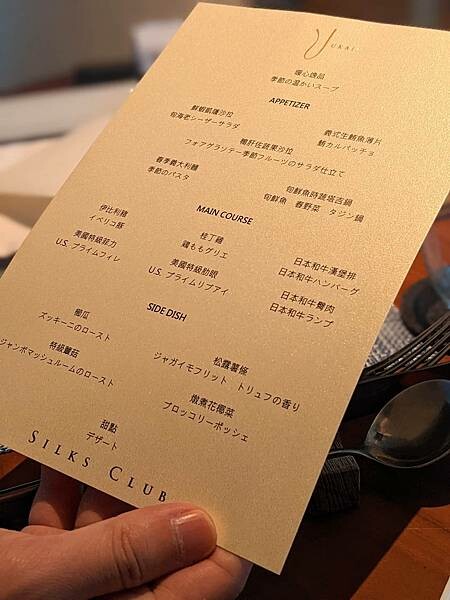 UKAI
暖心逸品
季節の温かいスープ
APPETIZER
鮮蝦凱薩沙拉
旬海老シーザーサラダ
義式生鮪魚薄片
鮪カルパッチョ
鴨肝佐蔬果沙拉
フォアグラソテー季節フルーツのサラダ仕立て
春季義大利麵
季節のパスタ
旬鮮魚時蔬塔吉鍋
旬鮮魚 春野菜 タジン鍋
MAIN COURSE
伊比利豬
イベリコ豚
桂丁雞
鶏ももグリエ
日本和牛漢堡排
日本和牛ハンバーグ
美國特級菲力
U.S. プライムフィレ
美國特級肋眼
U.S. プライムリブアイ
日本和牛臀肉
日本和牛ランプ
SIDE DISH
櫛瓜
ズッキーニのロースト
松露薯條
ジャガイモフリット トリュフの香り
特級蘑菇
ジャンボマッシュルームのロースト
燉煮花椰菜
ブロッコリーポッシェ
甜點
デザート
SILKS CLUB